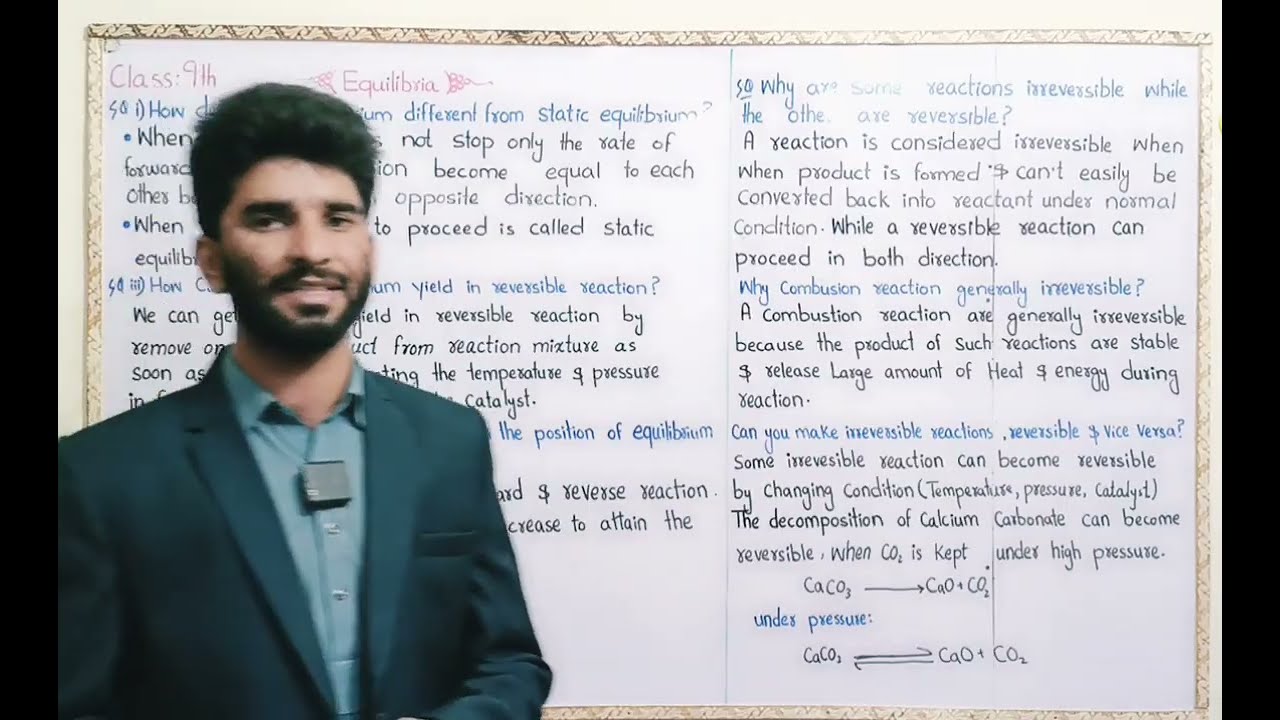 Class: 9th
Equilibria
SQ i) How d ium different from static equilibrium?
• When s not stop only the rate of
forward ion become equal to each
other b opposite direction.
• When to proceed is called static
equilib
SQ iii) How c um yield in reversible reaction?
We can get yield in reversible reaction by
remove on uct from reaction mixture as
soon as ting the temperature & pressure
in f Catalyst.
the position of equilibrium
ard & reverse reaction.
crease to attain the
SQ Why are some reactions irreversible while
the othe. are reversible?
A reaction is considered irreversible when
when product is formed & can't easily be
converted back into reactant under normal
Condition. While a reversible reaction can
proceed in both direction.
Why Combusion reaction generally irreversible?
A combustion reaction are generally irreversible
because the product of such reactions are stable
& release Large amount of Heat & energy during
reaction.
Can you make irreversible reactions, reversible & Vice Versa?
Some irrevesible reaction can become reversible
by Changing Condition (Temperature, pressure, Catalyst)
The decomposition of Calcium Carbonate can become
reversible, when CO₂ is kept under high pressure.
CaCO₃ ⟶ CaO + CO₂
under pressure:
CaCO₃ ⇌ CaO + CO₂